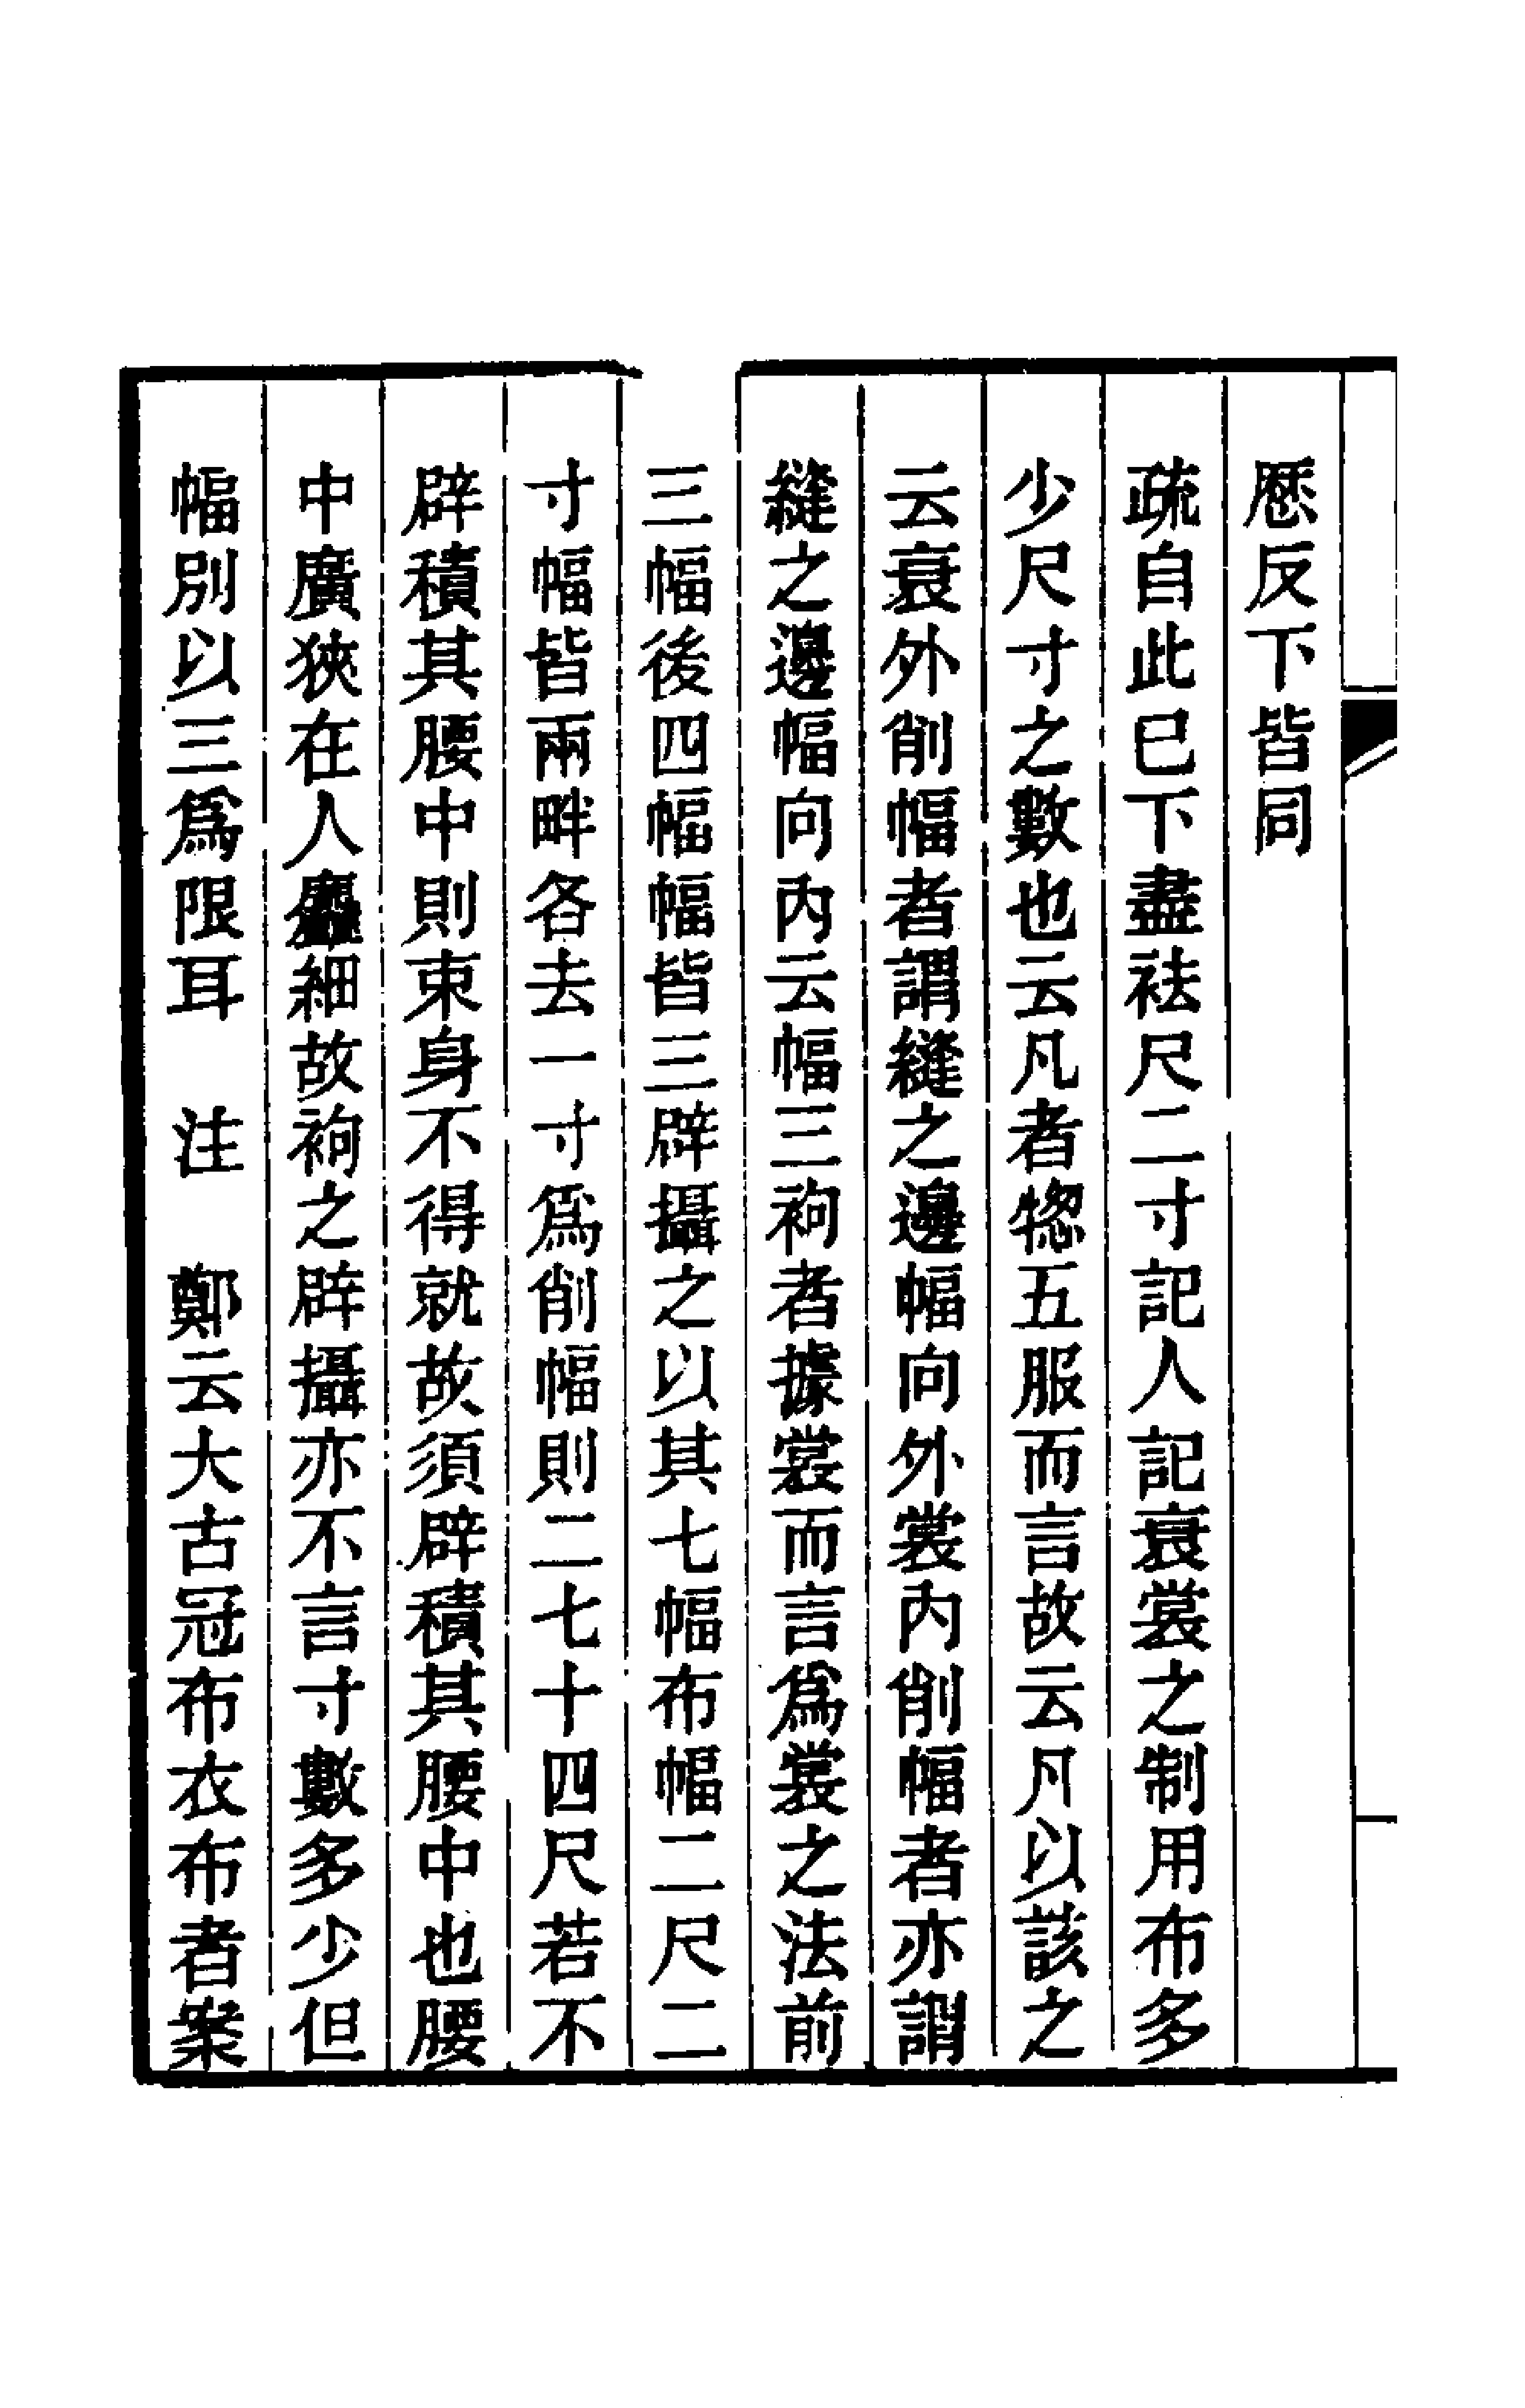 愿反下皆同
疏自此已下盡袪尺二寸記人記衰裳之制用布多
少尺寸之數也云凡者揔五服而言故云凡以該之
云衰外削幅者謂縫之邊幅向外裳內削幅者亦謂
縫之邊幅向內云幅三袧者據裳而言爲裳之法前
三幅後四幅幅皆三辟攝之以其七幅布幅二尺二
寸幅皆兩畔各去一寸爲削幅則二七十四尺若不
辟積其腰中則束身不得就故須辟積其腰中也腰
中廣狹在人麤細故袧之辟攝亦不言寸數多少但
幅別以三爲限耳　注　鄭云大古冠布衣布者案